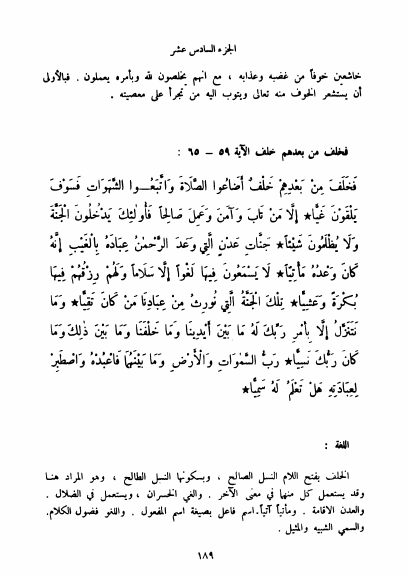 الجزء السادس عشر
خاشعين خوفاً من غضبه وعذابه ، مع انهم يخلصون لله وبأمره يعملون . فبالأولى
أن يستشعر الخوف منه تعالى ويتوب اليه من تجرأ على معصيته .
فخلف من بعدهم خلف الآية ٥٩ – ٦٥ :
فَخَلَفَ مِنْ بَعْدِهِمْ خَلْفٌ أَضَاعُوا الصَّلَاةَ وَاتَّبَعُــوا الشَّهَوَاتِ فَسَوْفَ
يَلْقَوْنَ غَيًّا* إِلَّا مَنْ تَابَ وَآمَنَ وَعَمِلَ صَالِحاً فَأُولَئِكَ يَدْخُلُونَ الْجَنَّةَ
وَلَا يُظْلَمُونَ شَيْئاً* جَنَّاتِ عَدْنٍ الَّتِي وَعَدَ الرَّحْمَنُ عِبَادَهُ بِالْغَيْبِ إِنَّهُ
كَانَ وَعْدُهُ مَأْتِيًّا* لَا يَسْمَعُونَ فِيهَا لَغْواً إِلَّا سَلَاماً وَلَهُمْ رِزْقُهُمْ فِيهَا
بُكْرَةً وَعَشِيًّا* تِلْكَ الْجَنَّةُ الَّتِي نُورِثُ مِنْ عِبَادِنَا مَنْ كَانَ تَقِيًّا* وَمَا
نَتَنَزَّلُ إِلَّا بِأَمْرِ رَبِّكَ لَهُ مَا بَيْنَ أَيْدِينَا وَمَا خَلْفَنَا وَمَا بَيْنَ ذَلِكَ وَمَا
كَانَ رَبُّكَ نَسِيًّا* رَبُّ السَّمَوَاتِ وَالْأَرْضِ وَمَا بَيْنَهُمَا فَاعْبُدْهُ وَاصْطَبِرْ
لِعِبَادَتِهِ هَلْ تَعْلَمُ لَهُ سَمِيًّا*
اللغة :
الخلف بفتح اللام النسل الصالح ، وبسكونها النسل الطالح ، وهو المراد هنا
وقد يستعمل كل منهما في معنى الآخر . والغي الخسران ، ويستعمل في الضلال .
والعدن الاقامة . ومأتياً آتياً.اسم فاعل بصيغة اسم المفعول . واللغو فضول الكلام.
والسمي الشبيه والمثيل .
١٨٩